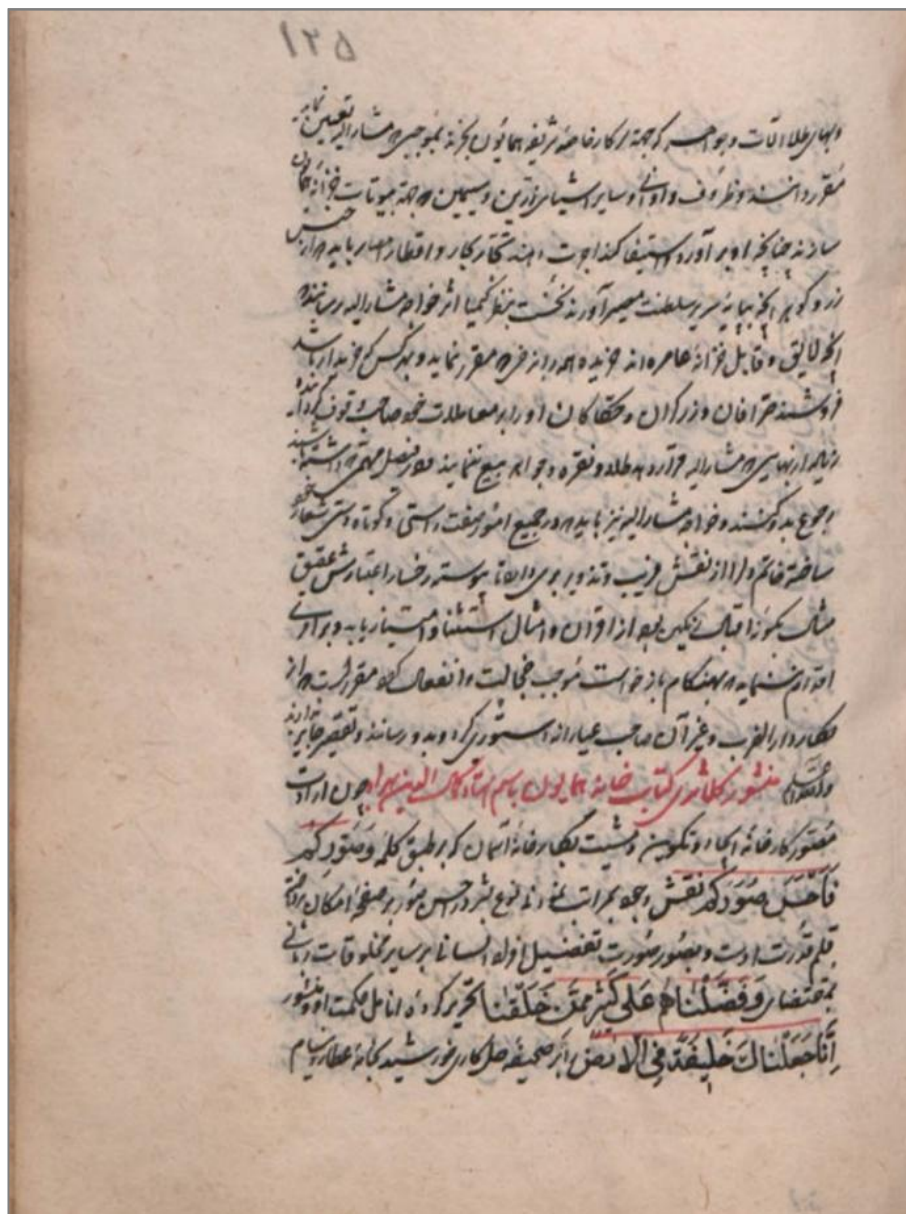 ۱۲۵
و بهای طلا آلات و جواهر که جهة سرکار خاصه شریفه همایون بخرند بموجبی که مشار الیه تعیین نماید
مقرر دانند و ظروف و اوانی و سایر اشیای زرین و سیمین که جهة بیوتات خزانه
سازند چنانچه او برآورد استیفا کند اجرت دهند تجار بکار و اقطار امصار باید که از جنس
زر و گوهر آنچه بپایه سریر سلطنت مصیر آورند نخست بنظر کیمیا اثر خواجه مشار الیه رسانند که
آنچه لایق و قابل خزانه عامره اند خریده بهر نرخی که مقرر نماید و هر کس که خریدار باشد
فروشند صرافان و زرگران و حکاکان او را بر معاملات خود صاحب وقوف
زیاده از بهایی که مشار الیه قرار دهد طلا و نقره و جواهر بیع ننمایند و در فیصل مهمی که داشته باشند
رجوع بدو کنند و خواجه مشار الیه نیز باید که در جمیع امور صفت راستی و کوتاه دستی شعار
ساخته خاتم دل را از نقش فریب و تزویر بری دارد تا پیوسته رخسار اعتبارش عقیق
مثال بنور اقبال رنگین بود از اقران و امثال استثنا و امتیاز یابد و بر امری
اقدام ننماید که بهنگام بازخواست موجب خجالت و انفعال گردد مقرر است که از
دار الضرب و غیر آن صاحب عیار از دستوری که بدو رسانند و تقصیر جایز ندارند
منشور کلانتری کتاب خانه همایون باسم استاد کمال الدین بهزاد چون ارادت
مصور کارخانه ایجاد و تکوین و مشیت نگارخانه آسمان که بر طبق کلمه وَصَوَّرَكُمْ
فَاَحْسَنَ صُوَرَكُمْ نقش وجود نوع بشر در احسن صور بر صفحه امکان
قلم قدرت اوست و بصور صورت تفضیل افراد انسانی بر سایر مخلوقات ربانی
بمقتضای وَفَضَّلْنَاهُمْ عَلٰی كَثِيرٍ مِمَّنْ خَلَقْنَا تحریر کرده انامل حکمت او و منشور
اِنَّا جَعَلْنَاكَ خَلِيفَةً فِی الْاَرْضِ را بر صحیفه حل کاری خورشید بخامه عطارد